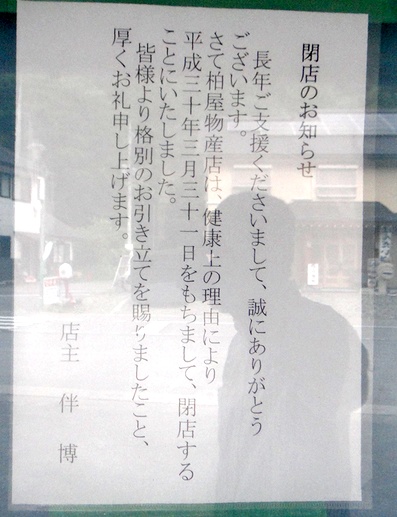 閉店のお知らせ
長年ご支援くださいまして、誠にありがとう
ございます。
さて柏屋物産店は、健康上の理由により
平成三十年三月三十一日をもちまして、閉店する
ことにいたしました。
皆様より格別のお引き立てを賜りましたこと、
厚くお礼申し上げます。
店主 伴 博